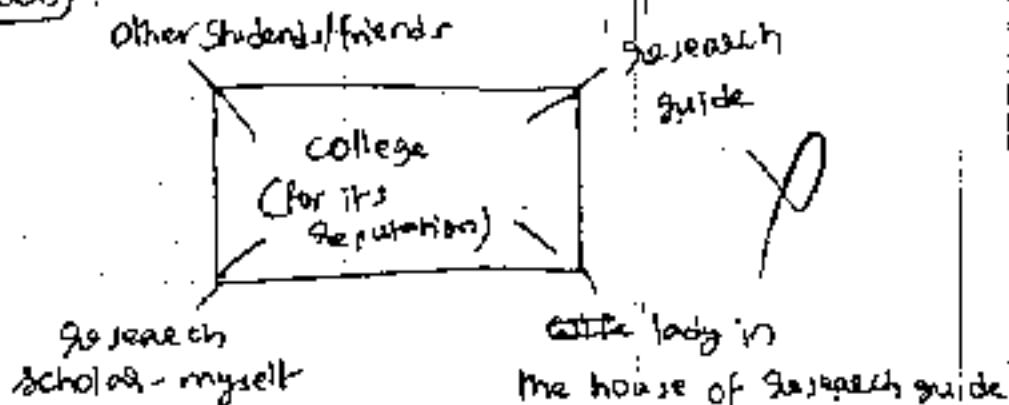 Other Students/friends
Research
guide
college
(for its
Reputation)
Research
Scholar - myself
lady in
the house of Research guide